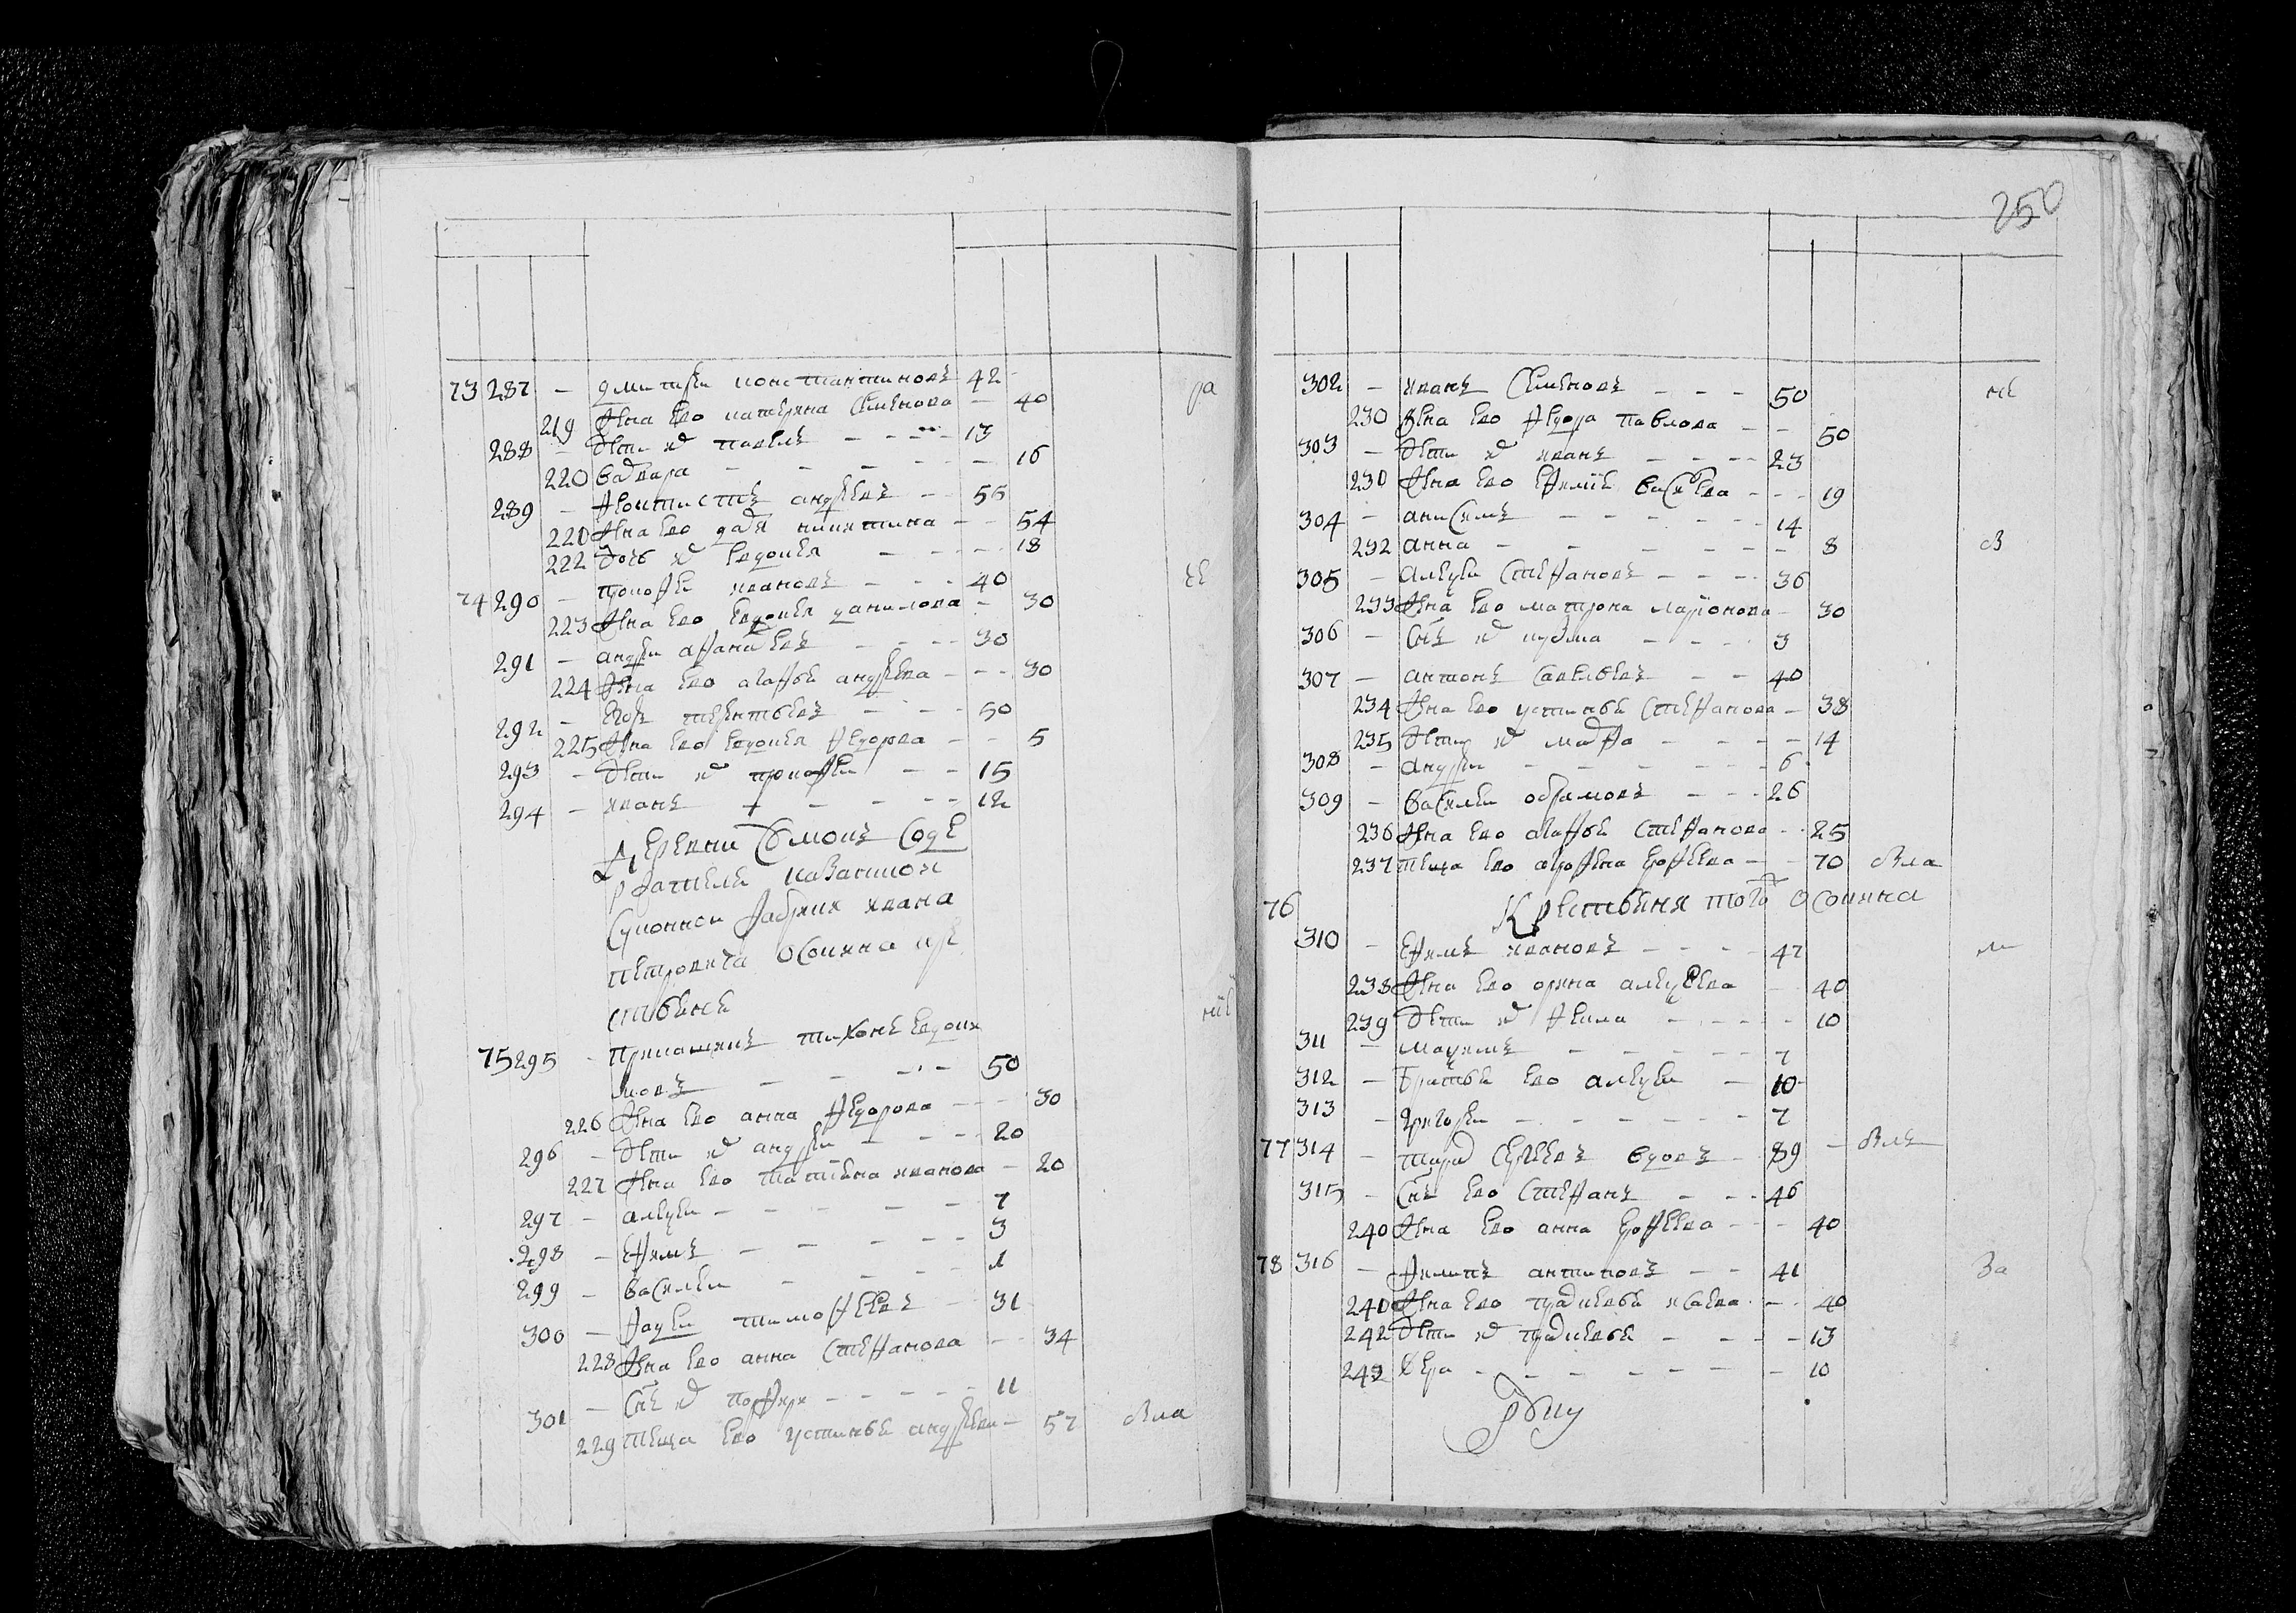 250
73 287 – дмитреи константиновъ 42
219 жена ево катерина семенова – 40 ра
288 – дети их павелъ – – – 13
220 варвара – – – – – 16
289 – феоктистъ андреевъ – – 56
220 жена ево даря никитина – – 54
222 дочь их евдокея – – – 18
74 290 – прокофеи ивановъ – – – 40
223 жена ево евдокея данилова – 30
291 – андреи афанасьевъ – – – 30
224 жена ево агафья андреева – – – 30
292 – егоръ терентьевъ – – – 50
225 жена ево евдокея федорова – – 5
293 – дети их прокофеи – – 15
294 – иванъ – – – – – 12
Деревни соде
ржателя казанской
суконной фабрики ивана
петровича осокина кре
стьяня
75 295 – тихонъ евдоки
мовъ – – – – 50
226 жена ево анна федорова – – – 30
296 – дети их андреи – – – 20
227 жена ево татиена иванова – 20
297 – алексеи – – – – – 7
298 – ефимъ – – – – – 3
299 – василеи – – – – 1
300 – тимофеевъ – 31
228 жена ево анна степанова – – 34
301 – снъ их – – – – – 11
229 теща ево устинья андреева – 57 вла
302 – иванъ семеновъ – – – 50
230 жена ево федора павлова – – 50
303 – дети их иванъ – – – – 23
230 жена ево васильева – – – 19
304 – анисимъ – – – – – – 14
232 анна – – – – – – – 8
305 – алексеи степановъ – – – – 36
233 жена ево матрона ларионова – 30
306 – снъ их кузма – – – – 3
307 – антонъ савельевъ – – 40
234 жена ево устинья степанова – 38
235 дети их марфа – – – – – 14
308 – андреи – – – – – – – 6
309 – василеи обрамовъ – – – 26
236 жена ево агафья степанова – – 25
237 теща ево агрофена ерофеева – – 70 вла
76 Крестьяня того осокина
310 – ефимъ ивановъ – – – – 47
238 жена ево орина алексеева – – 40
239 дети их – – – – – 10
311 – максимъ – – – – – – 7
312 – братья ево алексеи – – 10
313 – григореи – – – – – – 7
77 314 – тарас сергеевъ вдовъ – 89
315 – снъ ево степанъ – – – 46
240 жена ево анна ерофеева – – – 40
78 316 – филипъ антиповъ – – 41
240 жена ево прасковья исаева – – 40
242 дети их прасковья – – – – – 13
243 вера – – – – – – – 10